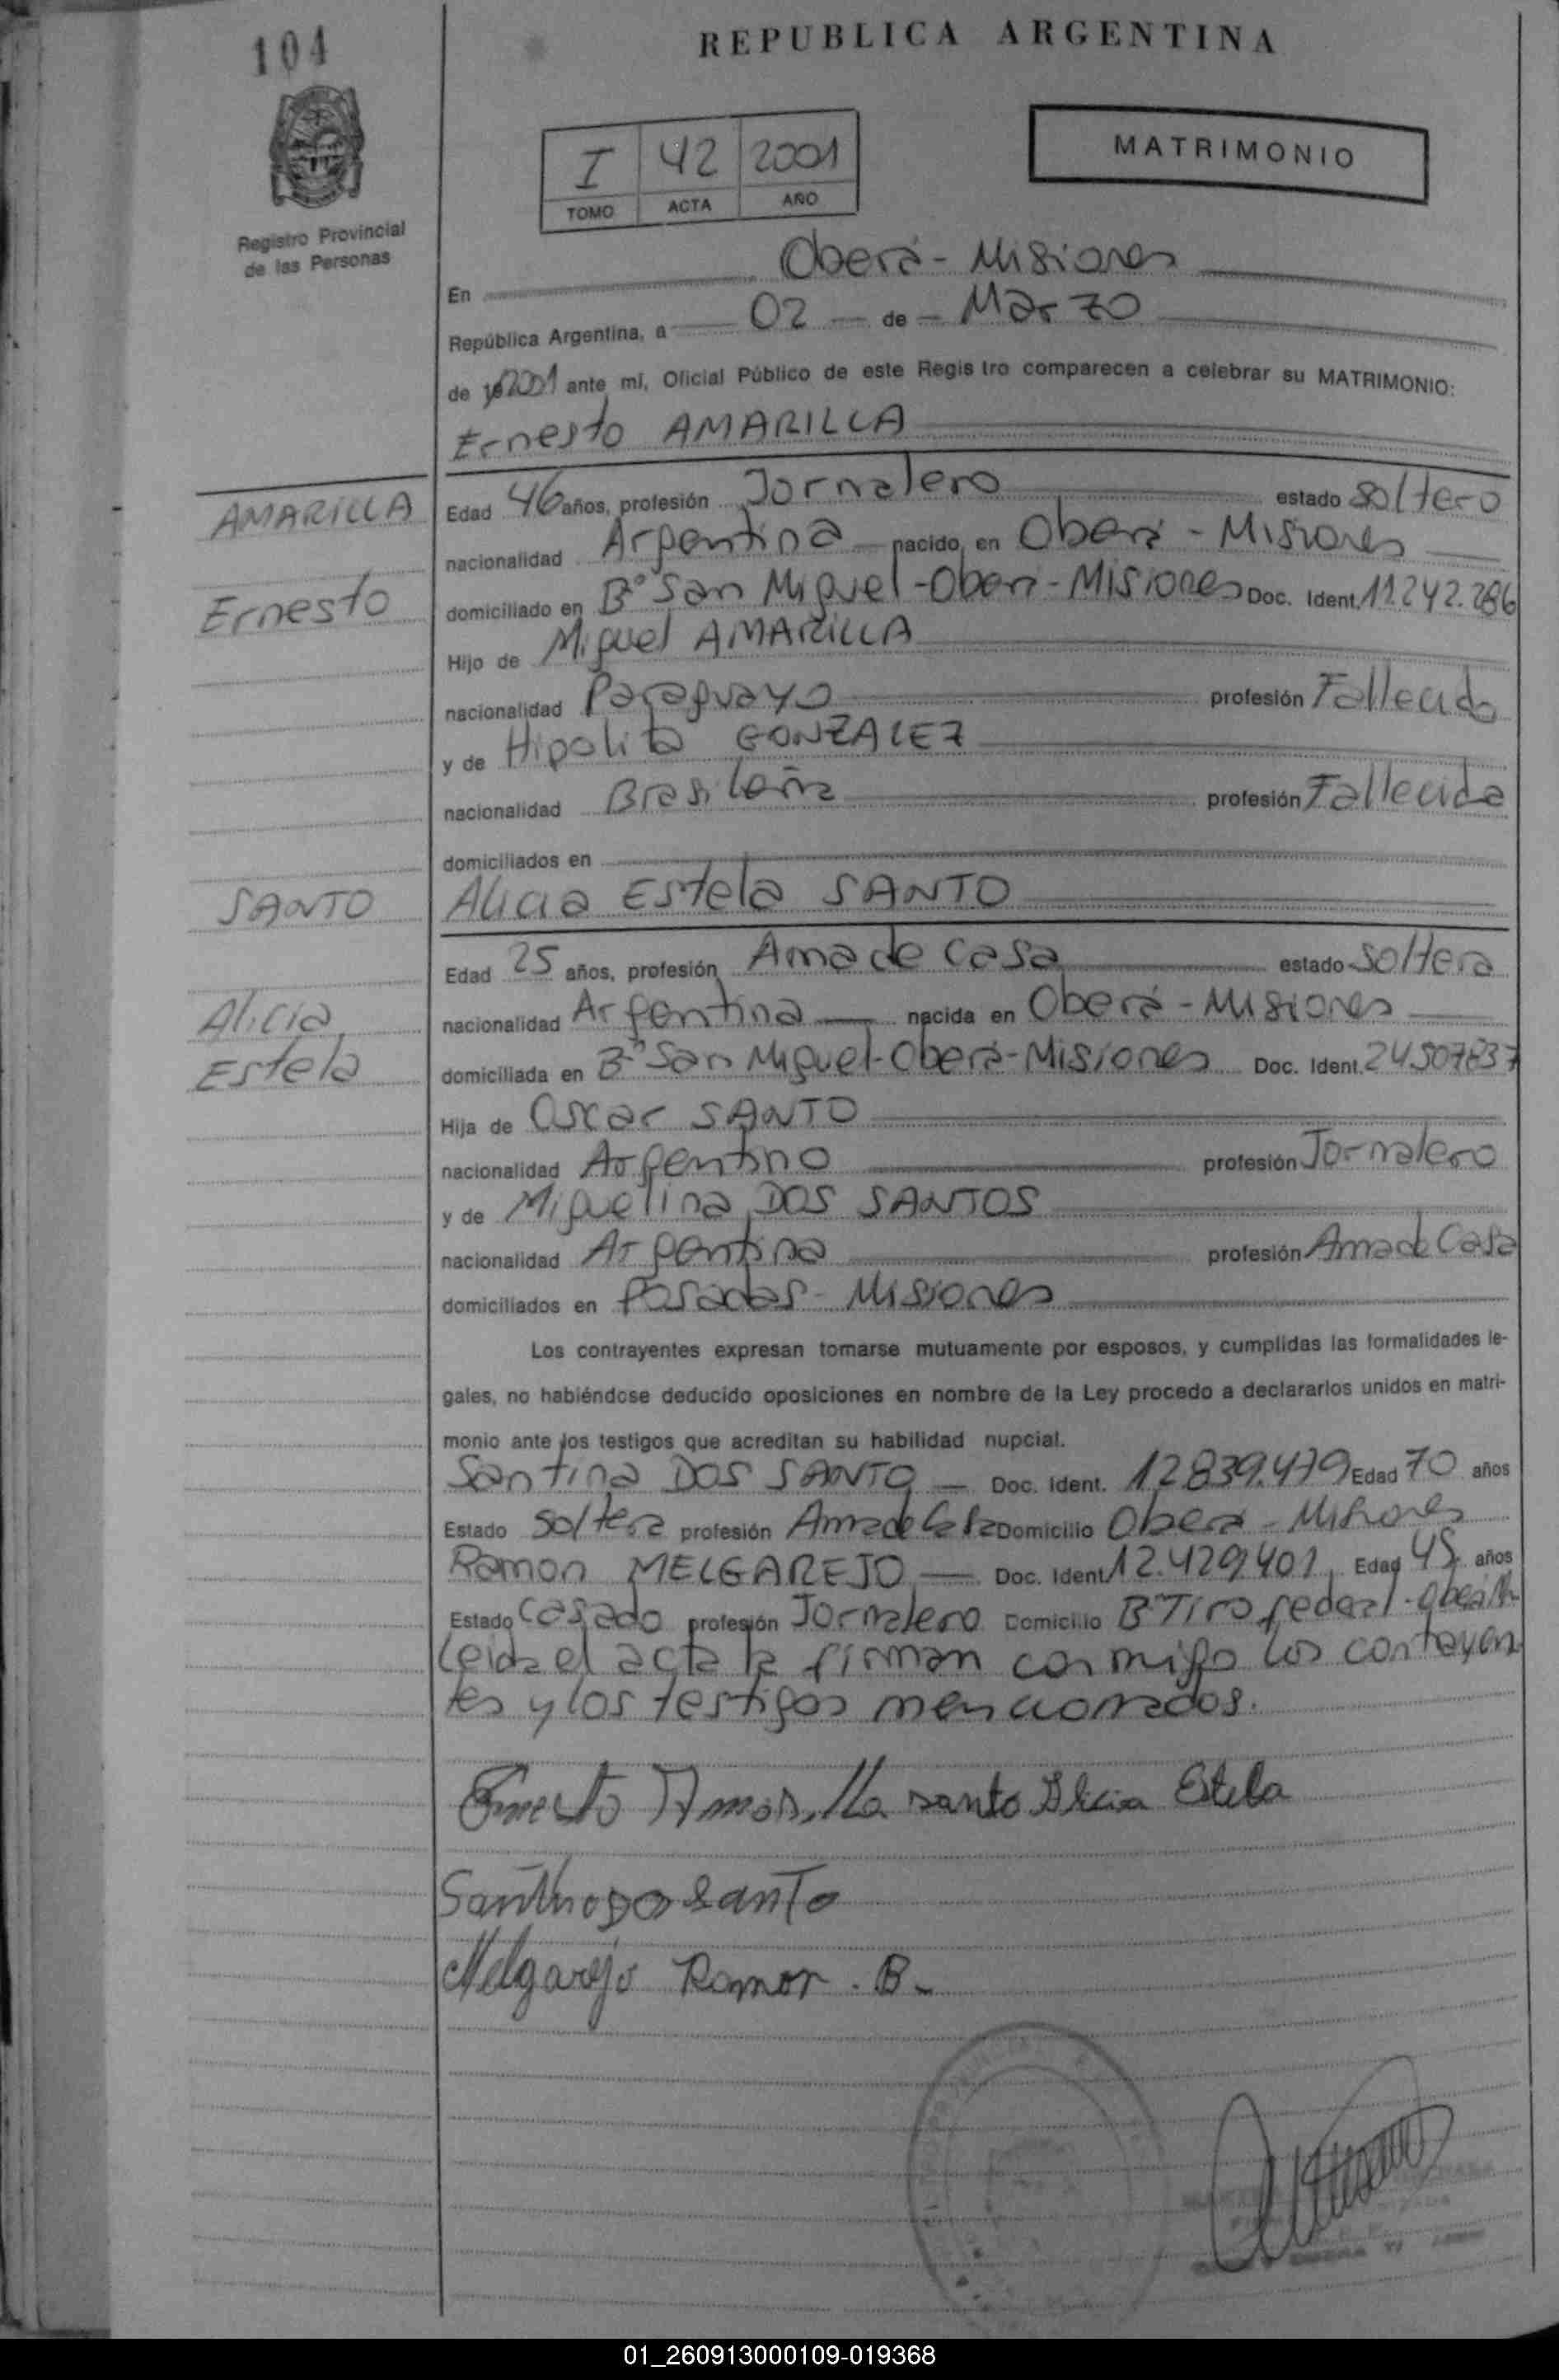 104
REPUBLICA ARGENTINA
Registro Provincial
de las Personas
I 42 2001
TOMO ACTA AÑO
MATRIMONIO
En Oberá - Misiones
República Argentina, a 02 de Marzo
de 2001 ante mí, Oficial Público de este Registro comparecen a celebrar su MATRIMONIO:
Ernesto AMARILLA
AMARILLA
Edad 46 años, profesión Jornalero estado soltero
nacionalidad Argentina nacido en Oberá - Misiones
Ernesto
domiciliado en B° San Miguel - Oberá - Misiones Doc. Ident. 11242.286
Hijo de Miguel AMARILLA
nacionalidad Paraguayo profesión Fallecido
y de Hipolita GONZALEZ
nacionalidad Brasileña profesión Fallecida
domiciliados en
SANTO
Alicia Estela SANTO
Edad 25 años, profesión Ama de Casa estado soltera
Alicia
nacionalidad Argentina nacida en Oberá - Misiones
Estela
domiciliada en B° San Miguel - Oberá - Misiones Doc. Ident. 24507837
Hija de Oscar SANTO
nacionalidad Argentino profesión Jornalero
y de Miguelina DOS SANTOS
nacionalidad Argentina profesión Ama de Casa
domiciliados en Posadas - Misiones
Los contrayentes expresan tomarse mutuamente por esposos, y cumplidas las formalidades le-
gales, no habiéndose deducido oposiciones en nombre de la Ley procedo a declararlos unidos en matri-
monio ante los testigos que acreditan su habilidad nupcial.
Santina DOS SANTO Doc. Ident. 12.839.479 Edad 70 años
Estado soltera profesión Ama de Casa Domicilio Oberá - Misiones
Ramon MELGAREJO Doc. Ident. 12.429.401 Edad 45 años
Estado Casado profesión Jornalero Domicilio B Tiro federal - Oberá
Leida el acta la firman conmigo los contrayen
tes y los testigos mencionados.
Ernesto Amarilla Santo Alicia Estela
Santo
Melgarejo Ramon . B.
01_260913000109-019368